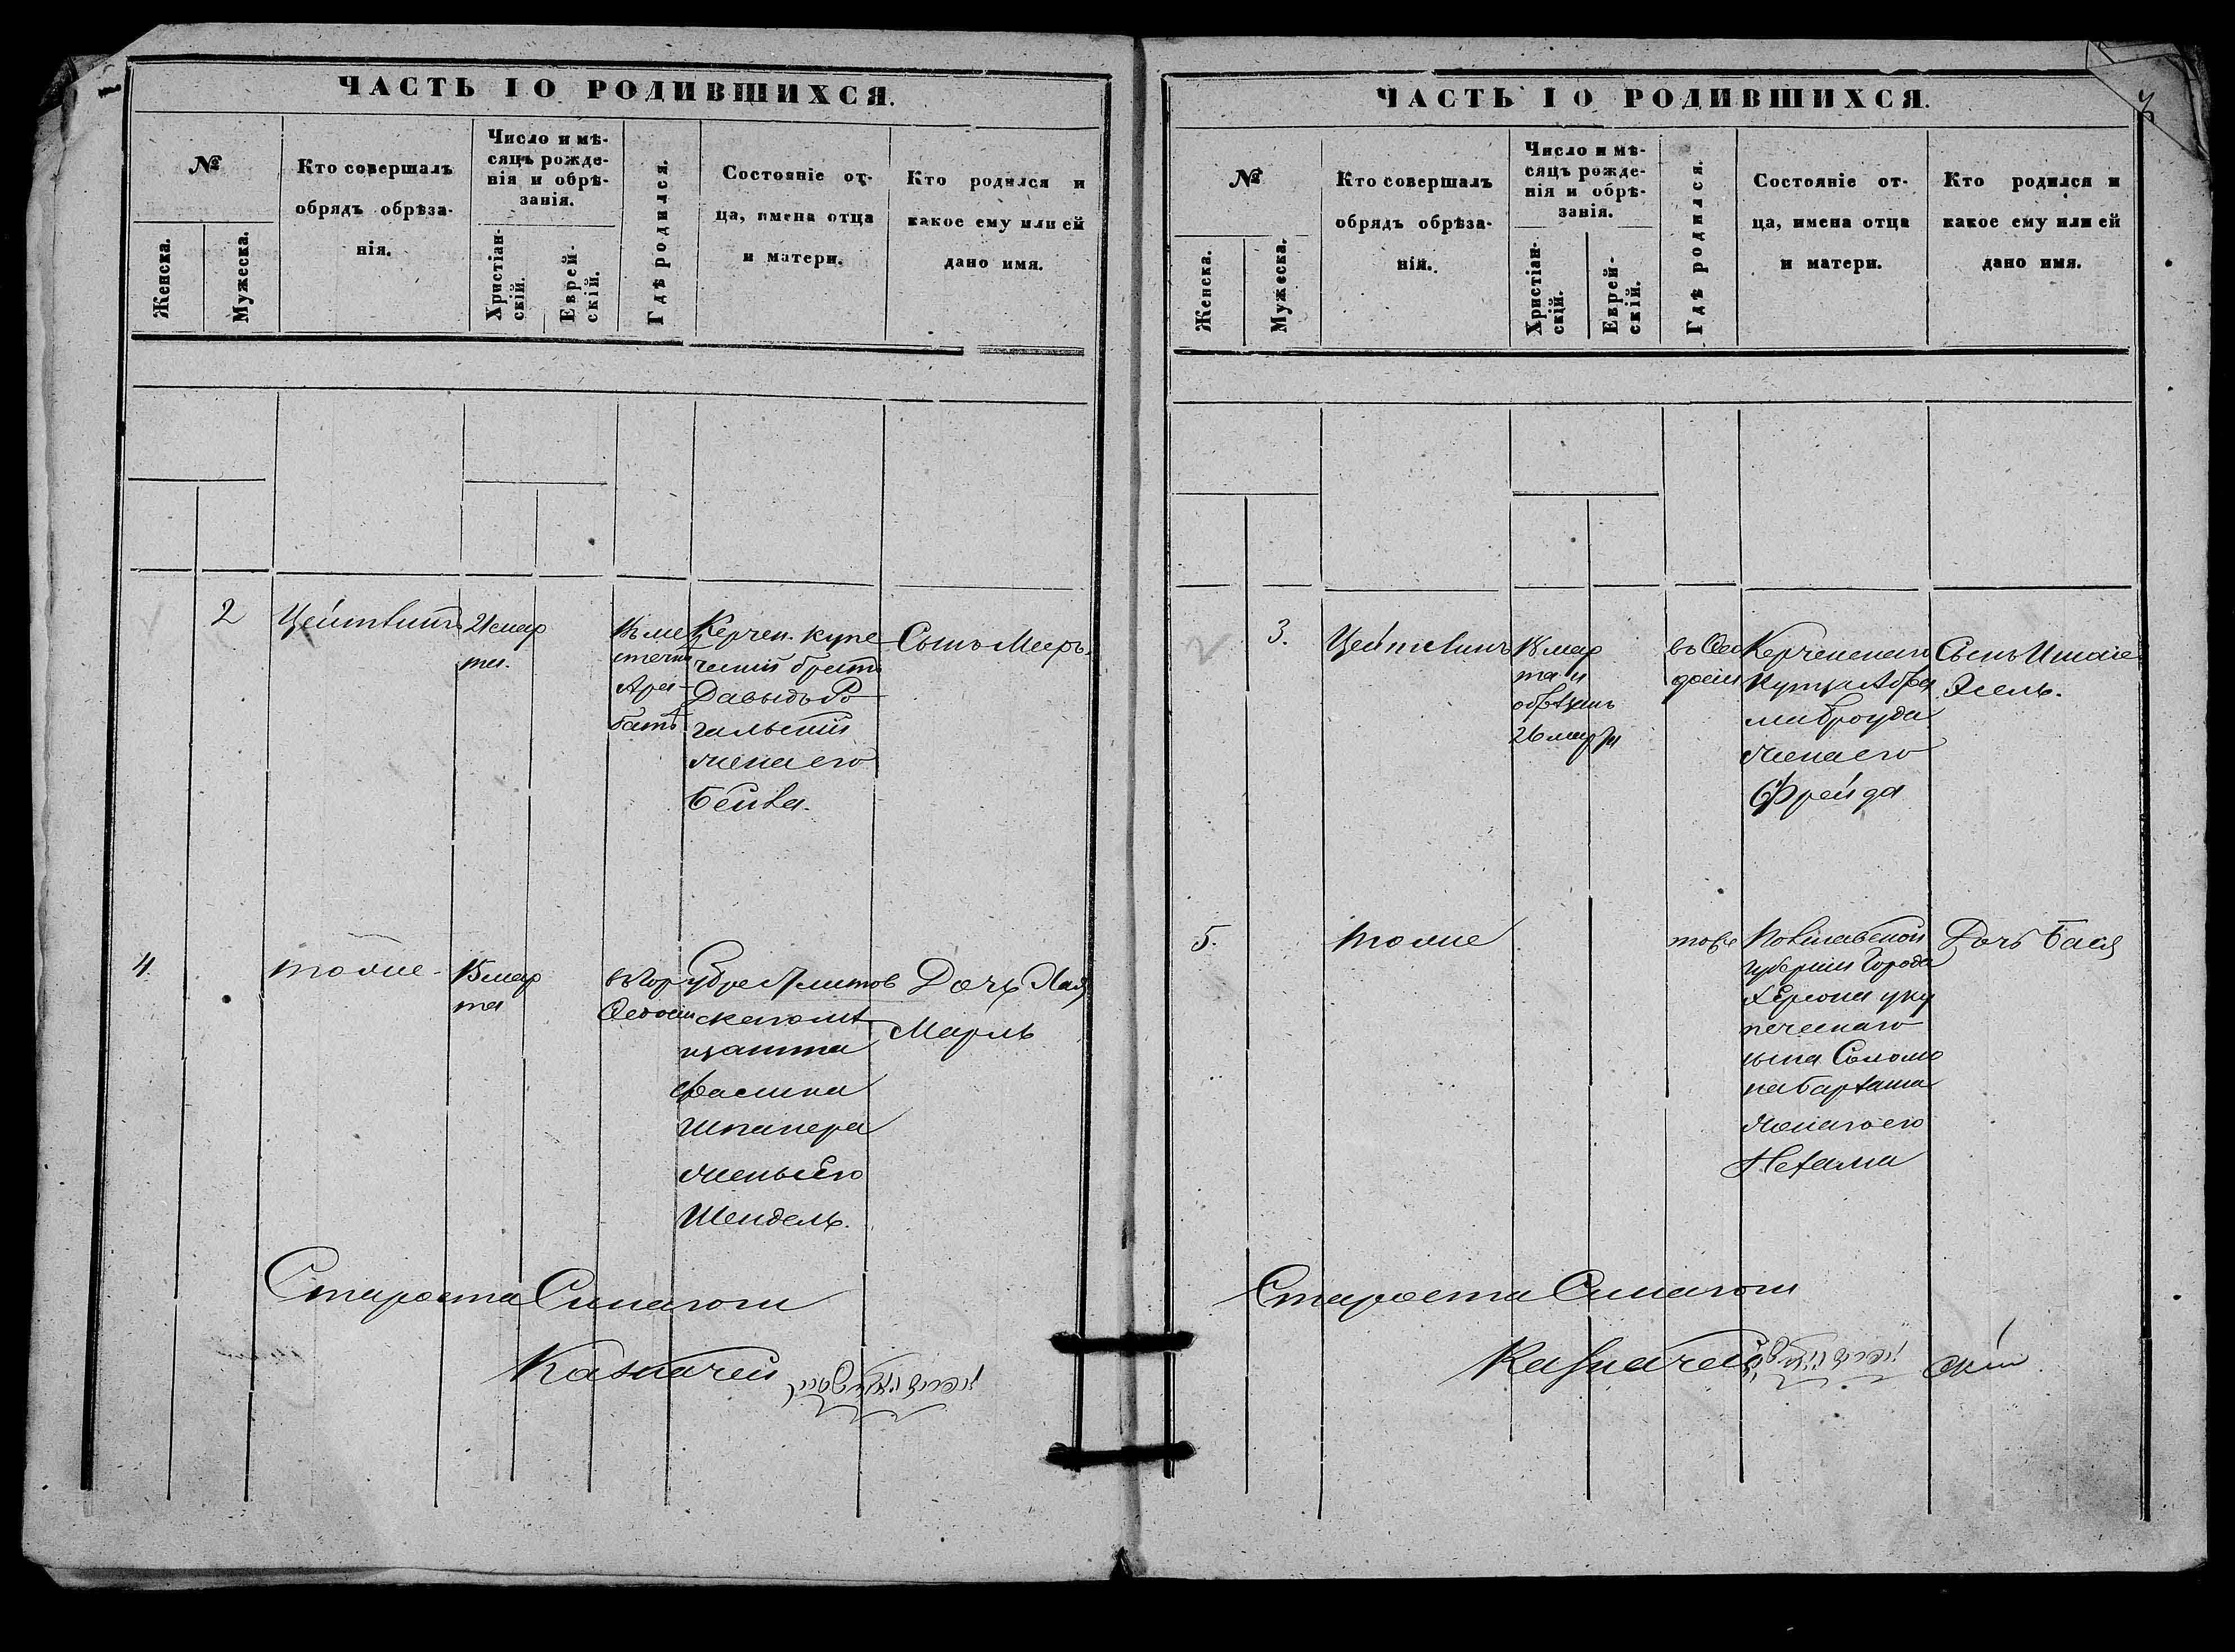 ЧАСТЬ I О РОДИВШИХСЯ.
№
Женска.
Мужеска.
Кто совершалъ
обрядъ обрѣза-
нія.
Число и мѣ-
сяцъ рожде-
нія и обрѣ-
занія.
Христіан-
скій.
Еврей-
скій.
Гдѣ родился.
Состояніе от-
ца, имена отца
и матери.
Кто родился и
какое ему или ей
дано имя.
2
21 мар
та.
Въ ме
стечкѣ
Ара-
батѣ
Керчен. купе
ческій братъ
Давыдъ Ро
гальскій
жена его
Бейла.
Сынъ Мееръ.
4.
тоже
15 мар
та
въ гор
Ѳеодосіи
Мелитополь
скаго мѣ
щанина
Шпанера
жены его
Шендель.
Дочь Хая
Марль
Староста Синагоги
Казначей
ЧАСТЬ I О РОДИВШИХСЯ.
№
Женска.
Мужеска.
Кто совершалъ
обрядъ обрѣза-
нія.
Число и мѣ-
сяцъ рожде-
нія и обрѣ-
занія.
Христіан-
скій.
Еврей-
скій.
Гдѣ родился.
Состояніе от-
ца, имена отца
и матери.
Кто родился и
какое ему или ей
дано имя.
3.
18 мар
та и
обрѣзанъ
26 марта
въ Ѳео
досіи
Керченскаго
купца Абра
ма Броуда
жена его
Фрейда
Сынъ
5.
тоже
губерніи города
Херсона ку
печескаго
сына Соломо
на
жена его
Нехама
Дочь Бася
Староста Синагоги
Казначей